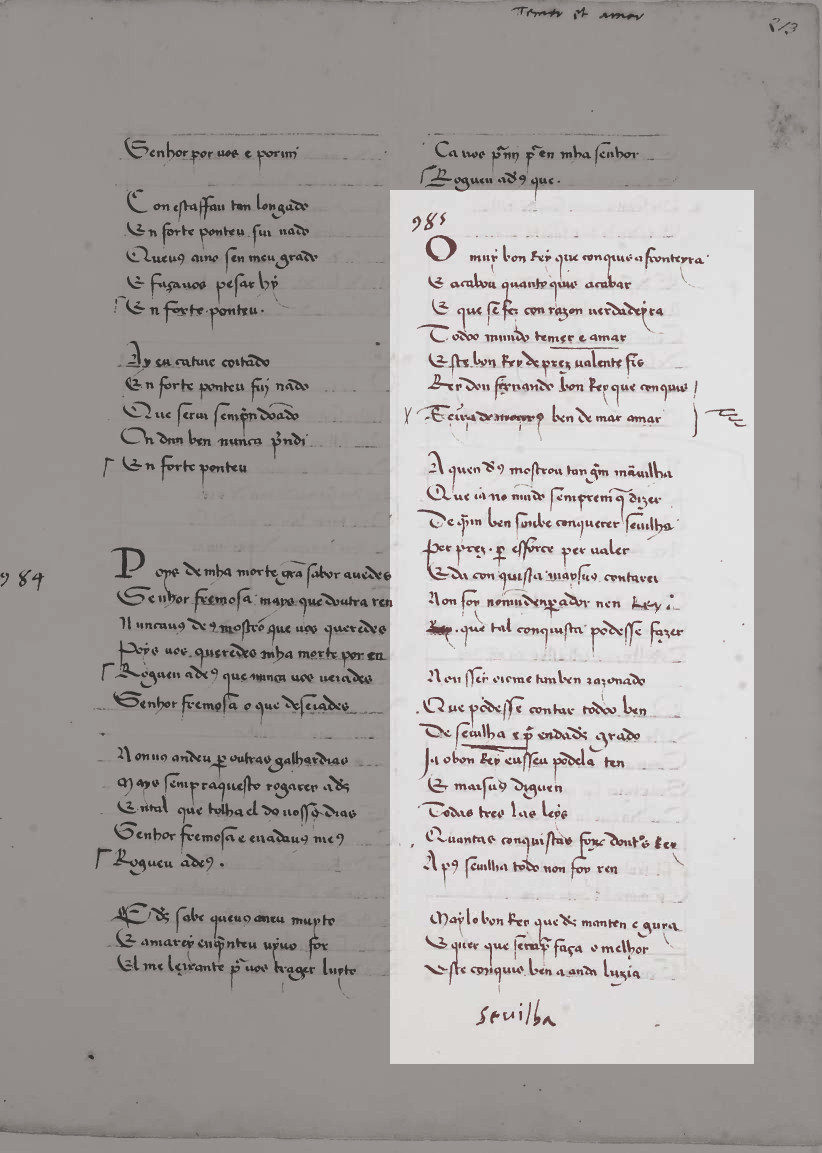 Temer et amar
213
Senhor por uos e por mi
Con estassau tan longado
En forte ponteu fui nado
Queuꝯ amo sen meu grado
E fazauos pesar hy
En forte ponteu.
Ay eu catiue coitado
En forte ponteu fuj nado
Que serui sempͬ n doado
On dun ben nunca pͬndi
En forte ponteu
984
Poys de mha morte grã sabor auedes
Senhor fremosa mays que doutra ren
Nuncauꝯ deꝯ mostro que uos queredes
Poys uos queredes mha morte por en
Rogueu adeꝯ que nunca uos ueiades
Senhor fremosa o que deseiades
Nonuꝯ andeu ꝑ outras galhardias
Mays sempraquesto rogarey ads̃
En tal que tolha el do uosso dias
Senhor fremosa e
Rogueu adeꝯ.
E ds̃ sabe queuꝯ aneu muyto
E amarey uyuo for
El me leixante pͬ uos trager luyto
Ca uos en mha senhor
Rogueu adꝯ que.
985
O muy bon Rey que conquis a fronteyra
E acabou quanto quis acabar
E que se fez con razon uerdadeyra
Todoo mundo temer e amar
Este bon Rey de prez ualente fis
Rey don fernando bon Rey que conquis
Terra de mouros ben de mar amar
A quen dꝯ mostrou tan grãm marauilha
Que ia no mũdo semprem q̃ dizer
De quãm ben soube conquerer seuilha
Per prez. ꝑ esforce per ualer
E da conquista maysuꝯ contarei
Non foy no mũdenꝑador nen Rey
Rey. que tal conquista podesse fazer
Non ssey ome tan ben razonado
Que podesse contar todoo ben
De seuilha e pͬ en dads̃ grado
Ja o bon Rey eusseu podela ten
E maisuꝯ diguen
Todas tres las leys
Quantas conquistas foꝝ doutͦs Rey
Apꝯ seuilha todo non foy ren
Maylo bon Rey que ds̃ manten e guya
E quer que sempͬ faça o melhor
Este conquis ben a anda luzia
seuilha